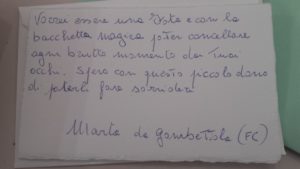 Vorrei essere una Fata e con la
bacchetta magica poter cancellare
ogni brutto momento dai Tuoi
occhi. Spero con questo piccolo dono
di poterti fare sorridere
Marta da Gambettola (FC)